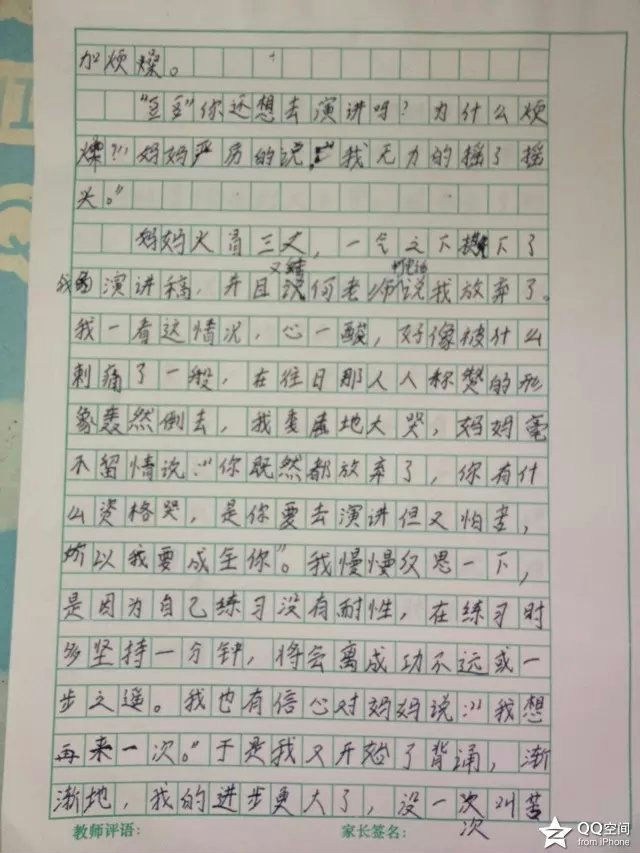 加烦燥。
"豆豆"你还想去演讲吗？为什么烦
燥？"妈妈严厉的说，"我无力的摇了摇
头。"
妈妈火冒三丈，一气之下撕下了
我的演讲稿，并且又给何老师打电话说我放弃了。
我一看这情况，心一酸，好像被什么
刺痛了一般，在往日那人人称赞的形
象轰然倒去，我委屈地大哭，妈妈毫
不留情说："你既然都放弃了，你有什
么资格哭，是你要去演讲但又怕苦，
所以我要成全你"。我慢慢仅思一下，
是因为自己练习没有耐性，在练习时
多坚持一分钟，将会离成功不远或一
步之遥。我也有信心对妈妈说："我想
再来一次。"于是我又开始了背诵，渐
渐地，我的进步更大了，没一次叫苦
次
教师评语：
家长签名：
QQ空间
from iPhone